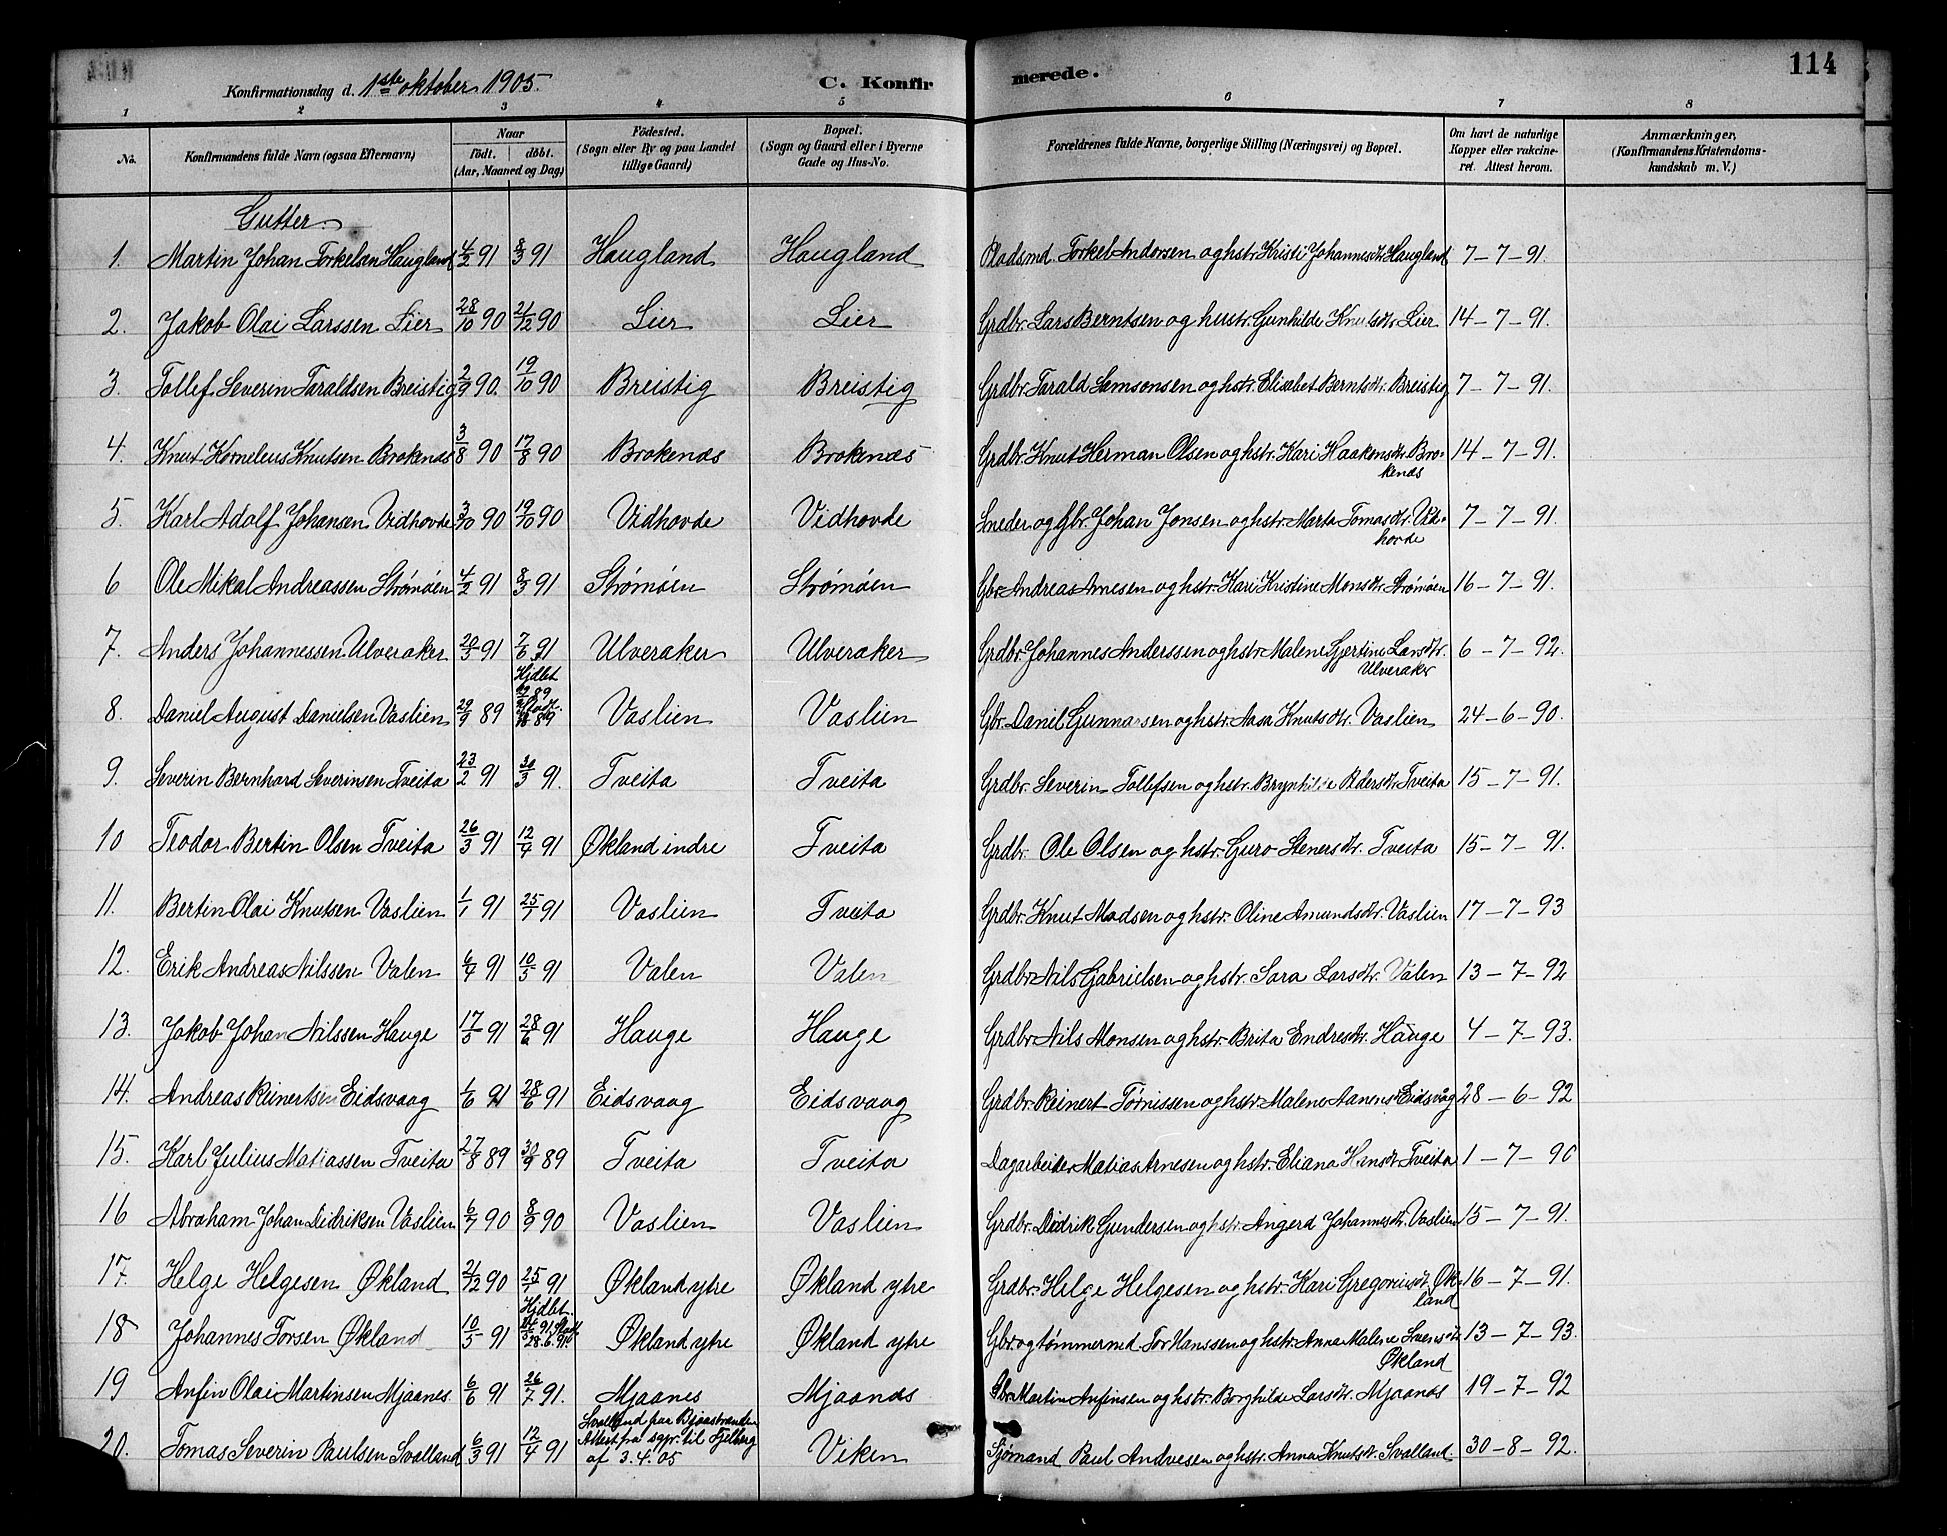 114
Konfirmationsdag d. 1ste oktober 1905. C. Konfirmerede.
1 2 3 4 5 6 7 8
No. Konfirmandens fulde Navn (ogsaa Efternavn) Naar födt. döbt. (Aar, Maaned og Dag) Födested. (Sogn eller By og paa Landet tillige Gaard) Bopæl. (Sogn og Gaard eller i Byerne Gade og Hus-No. Forældrenes fulde Navne, borgerlige Stilling (Næringsvei) og Bopæl. Om havt de naturlige Kopper eller vakcineret. Attest herom. Anmærkninger, (Konfirmandens Kristendomskundskab m. V.)
Gutter.
1. Martin Johan Torkelsen Haugland 4/2 91 8/3 91 Haugland Haugland Pladsmd. Torkel Andersen og hstr. Kristi Johannesdtr. Haugland 7-7-91.
2. Jakob Olai Larssen Lier 28/10 90 21/12 90 Lier Lier Grdbr. Lars Berntsen og hustr. Gunhilde Knutsdtr. Lier 14-7-91.
3. Tollef Severin Taraldsen Breistig 2/9 90. 19/10 90 Breistig Breistig Grdbr. Tarald Samsonsen og hstr. Elisabet Berntsdtr. Breistig 7-7-91.
4. Knut Kornelius Knutsen Brokenæs 3/8 90 17/8 90 Brokenæs Brokenæs Grdbr. Knut Herman Olsen og hstr. Kari Haakensdtr. Brokenæs 14-7-91.
5. Karl Adolf Johansen Vidhovde 3/10 90 19/10 90 Vidhovde Vidhovde Sneder og Gbr. Johan Jonsen og hstr. Marta Tomasdtr. Vidhovde 7-7-91.
6 Ole Mikal Andreassen Strømøen 4/2 91 8/3 91 Strømøen Strømøen Gbr. Andreas Arnesen og hstr. Kari Kristine Monsdtr. Strømøen 16-7-91.
7. Anders Johannessen Ulveraker 20/5 91 7/6 91 Ulveraker Ulveraker Grdbr. Johannes Anderssen og hstr. Malene Gjertine Larsdtr. Ulveraker 6-7-92.
8. Daniel August Danielsen Vaslien 29/9 89 Hjdbt. 89 Vaslien Vaslien Gbr. Danil Gunnarsen og hstr. Aasa Knutsdtr. Vaslien 24-6-90.
9. Severin Bernhard Severinsen Tveita 23/2 91 30/3 91. Tveita Tveita Grdbr. Severin Tollefsen og hstr. Brynhilde Pedersdtr. Tveita 15-7-91.
10 Teodor Bertin Olsen Tveita 26/3 91 12/4 91 Økland indre Tveita Grdbr. Ole Olsen og hstr. Guro Stenersdtr. Tveita 15-7-91.
11. Bertin Olai Knutsen Vaslien 1/1 91 25/1 91 Vaslien Tveita Grdbr. Knut Madsen og hstr. Oline Amundsdtr. Vaslien 17-7-93
12. Erik Andreas Nilssen Valen 6/4 91 10/5 91 Valen Valen Grdbr. Nils Gabrielsen og hstr. Sara Larsdtr. Valen 13-7-92
13. Jakob Johan Nilssen Hauge 17/5 91 28/6 91 Hauge Hauge Grdbr. Nils Monsen og hstr. Brita Endresdtr. Hauge 4-7-93.
14. Andreas Reinertsen Eidsvaag 1/6 91 28/6 91 Eidsvaag Eidsvaag Grdbr. Reinert Tørnissen og hstr. Malene Aanensd. Eidsvåg 28-6-92
15. Karl Julius Matiassen Tveita 27/8 89 30/9 89 Tveita Tveita Dagarbeider Matias Arnesen og hstr. Eliana Hansdtr. Tveita 1-7-90
16 Abraham Johan Didriksen Vaslien 6/7 90 8/9 90 Vaslien Vaslien Grdbr. Didrik Gundersen og hstr. Angerd Johannesdtr. Vaslien 15-7-91.
17 Helge Helgesen Økland 21/12 90 25/1 91 Økland ytre Økland ytre Grdbr. Helge Helgesen og hstr. Kari Gregoriusdt. Økland 16-7-91.
18 Johannes Torsen Økland 10/5 91 Hjdbt. 91 28.6.91. Økland ytre Økland ytre Gbr. og tømmermd. Tor Hanssen og hstr. Anna Malene Svensdtr. Økland 13-7-93.
19 Anfin Olai Martinsen Mjaanes. 6/6 91 26/7 91. Mjaanes Mjaanæs Gbr. Martin Anfinsen og hstr. Borghilde Larsdtr. Mjaanæs 19-7-92
20. Tomas Severin Paulsen Svalland 6/3 91 12/4 91 Svalland paa Bjoastranden Attest fra sgpr. til Fjelberg af 3.4.05 Viken Sjømand Paul Andresen og hstr. Anna Knutsdtr. Svalland. 30-8-92.